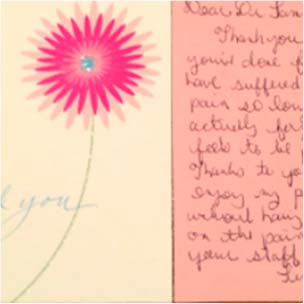 you
Dear Dr
Thank you
you've done f
have suffered
pain so lon
actually for
feels to be
Thanks to yo
enjoy my p
without havi
on the pain
your staff